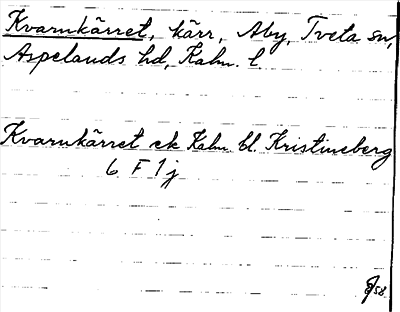 Kvarnkärret, kärr, Åby, Tveta sn,
Aspelands hd, Kalm. l.
Kvarnkärret ek Kalm. bl. Kristineberg
6 F 1 j
58.